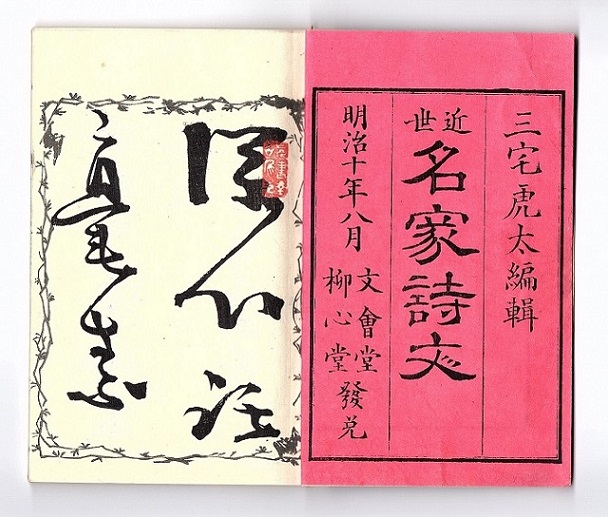 三宅虎太編輯
近世
名家詩文
明治十年八月
文會堂
柳心堂
發兌
深心託
毫素